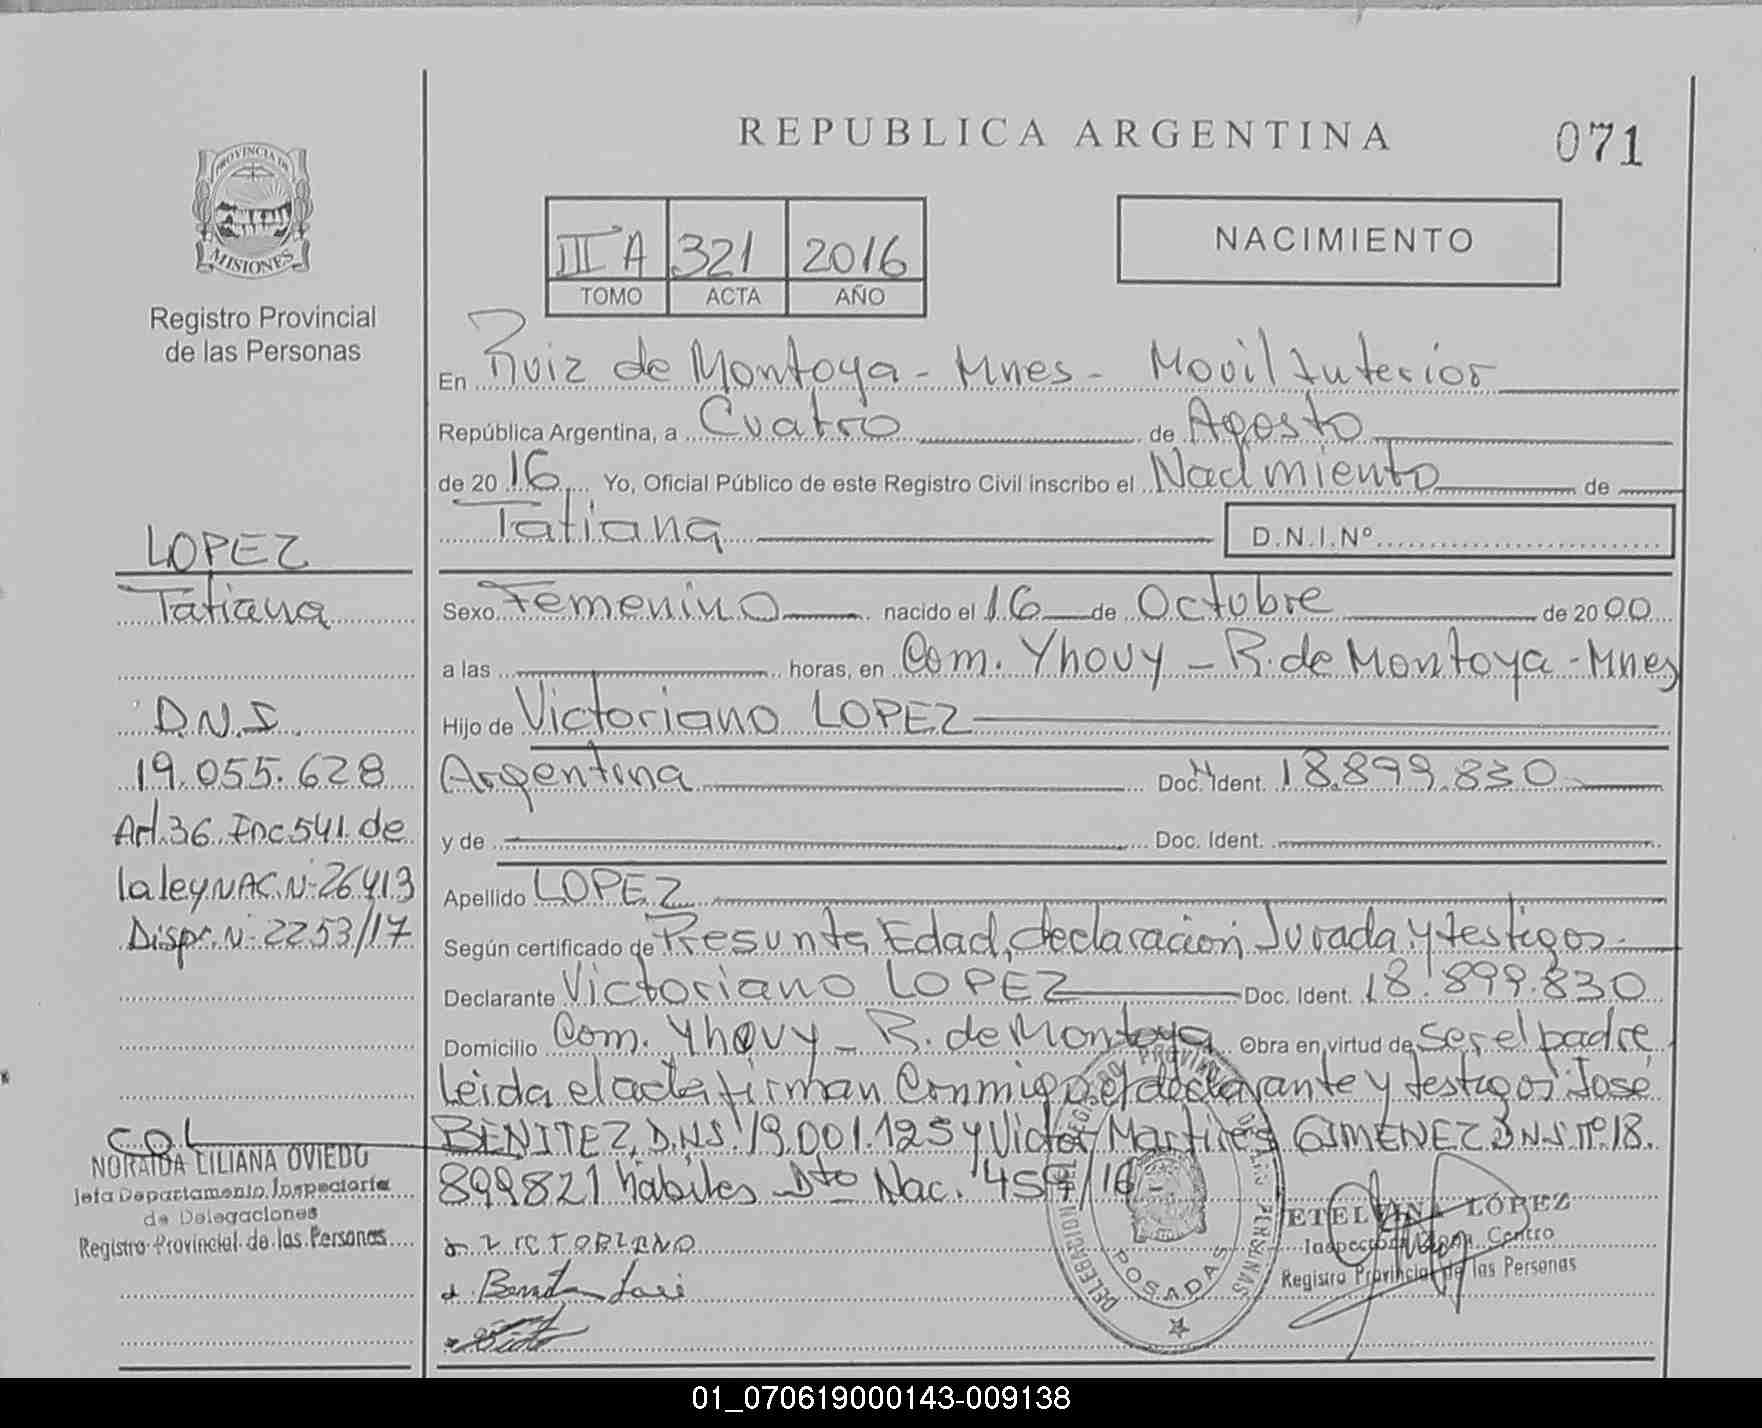 REPUBLICA ARGENTINA
071
PROVINCIA DE
MISIONES
Registro Provincial
de las Personas
III A 321 2016
TOMO ACTA AÑO
NACIMIENTO
En Ruiz de Montoya - Mnes - Movil Interior
República Argentina, a Cuatro de Agosto
de 20 16 Yo, Oficial Público de este Registro Civil inscribo el Nacimiento de
Tatiana D.N.I.Nº
LOPEZ
Tatiana
D.N.I.
19.055.628
Art.36 Inc 541 de
la ley NAC. N- 26413
Disp. N- 2253/17
NORAIDA LILIANA OVIEDO
Jefa Departamento Inspectoria
de Delegaciones
Registro Provincial de las Personas
Sexo Femenino nacido el 16 de Octubre de 20 00
a las horas, en Com. Yhovy - R. de Montoya - Mnes
Hijo de Victoriano LOPEZ
Argentina Doc. Ident. 18.899.830
y de Doc. Ident.
Apellido LOPEZ
Según certificado de Presunta Edad, declaracion Jurada y testigos
Declarante Victoriano LOPEZ Doc. Ident. 18.899.830
Domicilio Com. Yhovy - R. de Montoya Obra en virtud de ser el padre
Leida el acta firman Conmigo el declarante y testigos José
BENITEZ, D.N.I. 19.001.125 y Victor Martires GIMENEZ D.N.I. Nº 18.
899821 habiles Dto Nac. 459/16
VICTORIANO
Benitez José
DELEGACION DEL REGISTRO PROVINCIAL DE LAS PERSONAS
POSADAS
ETELVINA LÓPEZ
Inspectora Zona Centro
Registro Provincial de las Personas
01_070619000143-009138